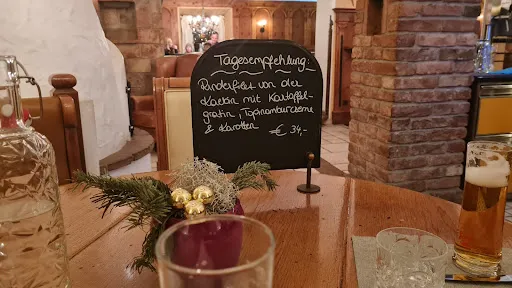 Tagesempfehlung:
Rinderfilet von der
Kalbin mit Kartoffel-
gratin, Topinamburcreme
& Karotten € 34,-